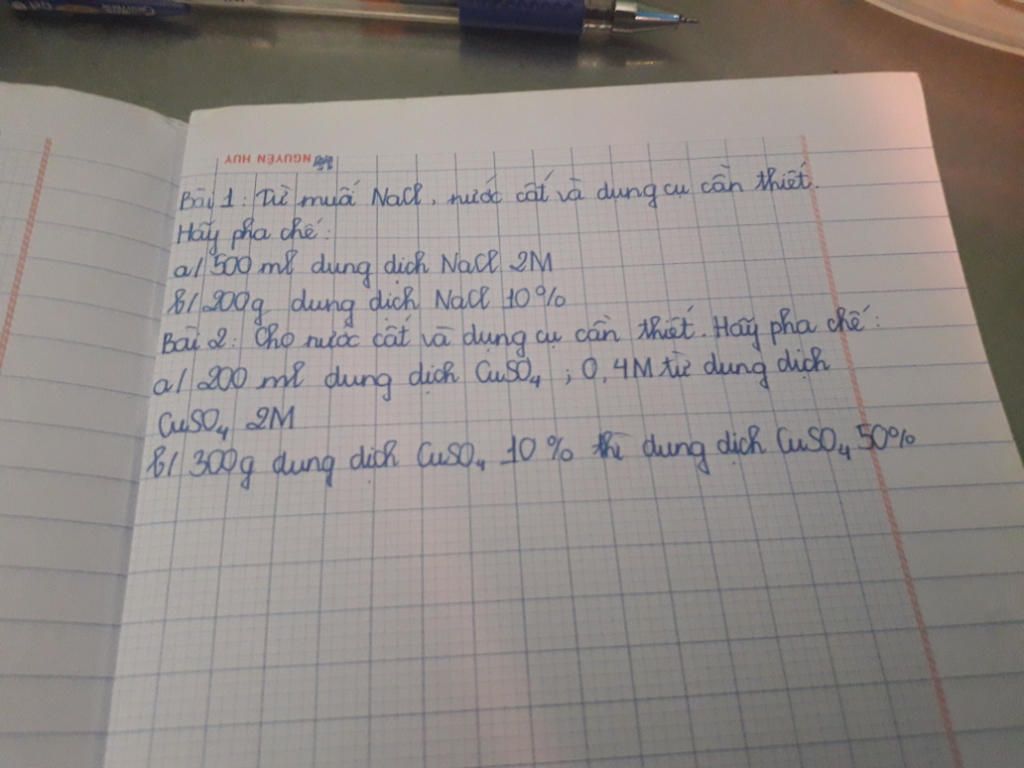 NGUYEN HUY
Bài 1: Từ muối NaCl, nước cất và dụng cụ cần thiết.
Hãy pha chế:
a/ 500 ml dung dịch NaCl 2M
b/ 200g dung dịch NaCl 10%
Bài 2: Cho nước cất và dụng cụ cần thiết. Hãy pha chế:
a/ 200 ml dung dịch CuSO₄ ; 0,4M từ dung dịch
CuSO₄ 2M
b/ 300g dung dịch CuSO₄ 10% thì dung dịch CuSO₄ 50%